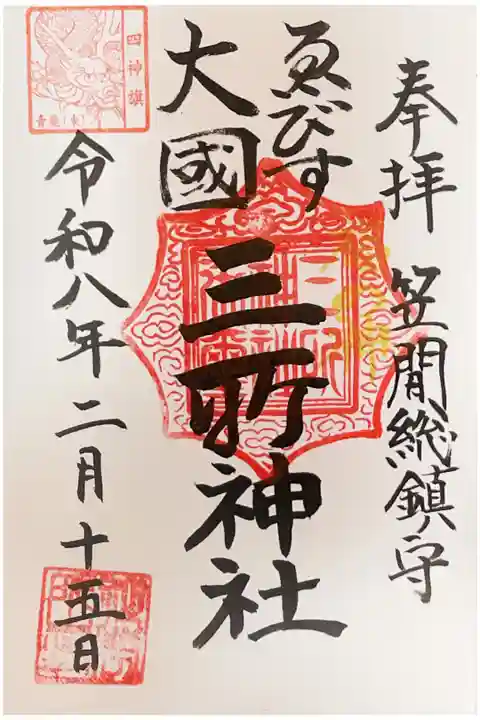 奉拝 笠間総鎮守
ゑびす
大國
三所神社
令和八年二月十五日
四神旗
青龍(東)